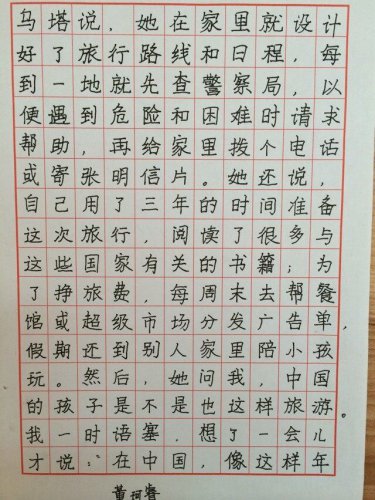 乌塔说，她在家里就设计
好了旅行路线和日程，每
到一地就先查警察局，以
便遇到危险和困难时请求
帮助，再给家里拨个电话
或寄张明信片。她还说，
自己用了三年的时间准备
这次旅行，阅读了很多与
这些国家有关的书籍；为
了挣旅费，每周末去帮餐
馆或超级市场分发广告单，
假期还到别人家里陪小孩
玩。然后，她问我，中国
的孩子是不是也这样旅游。
我一时语塞，想了一会儿
才说：在中国，像这样年